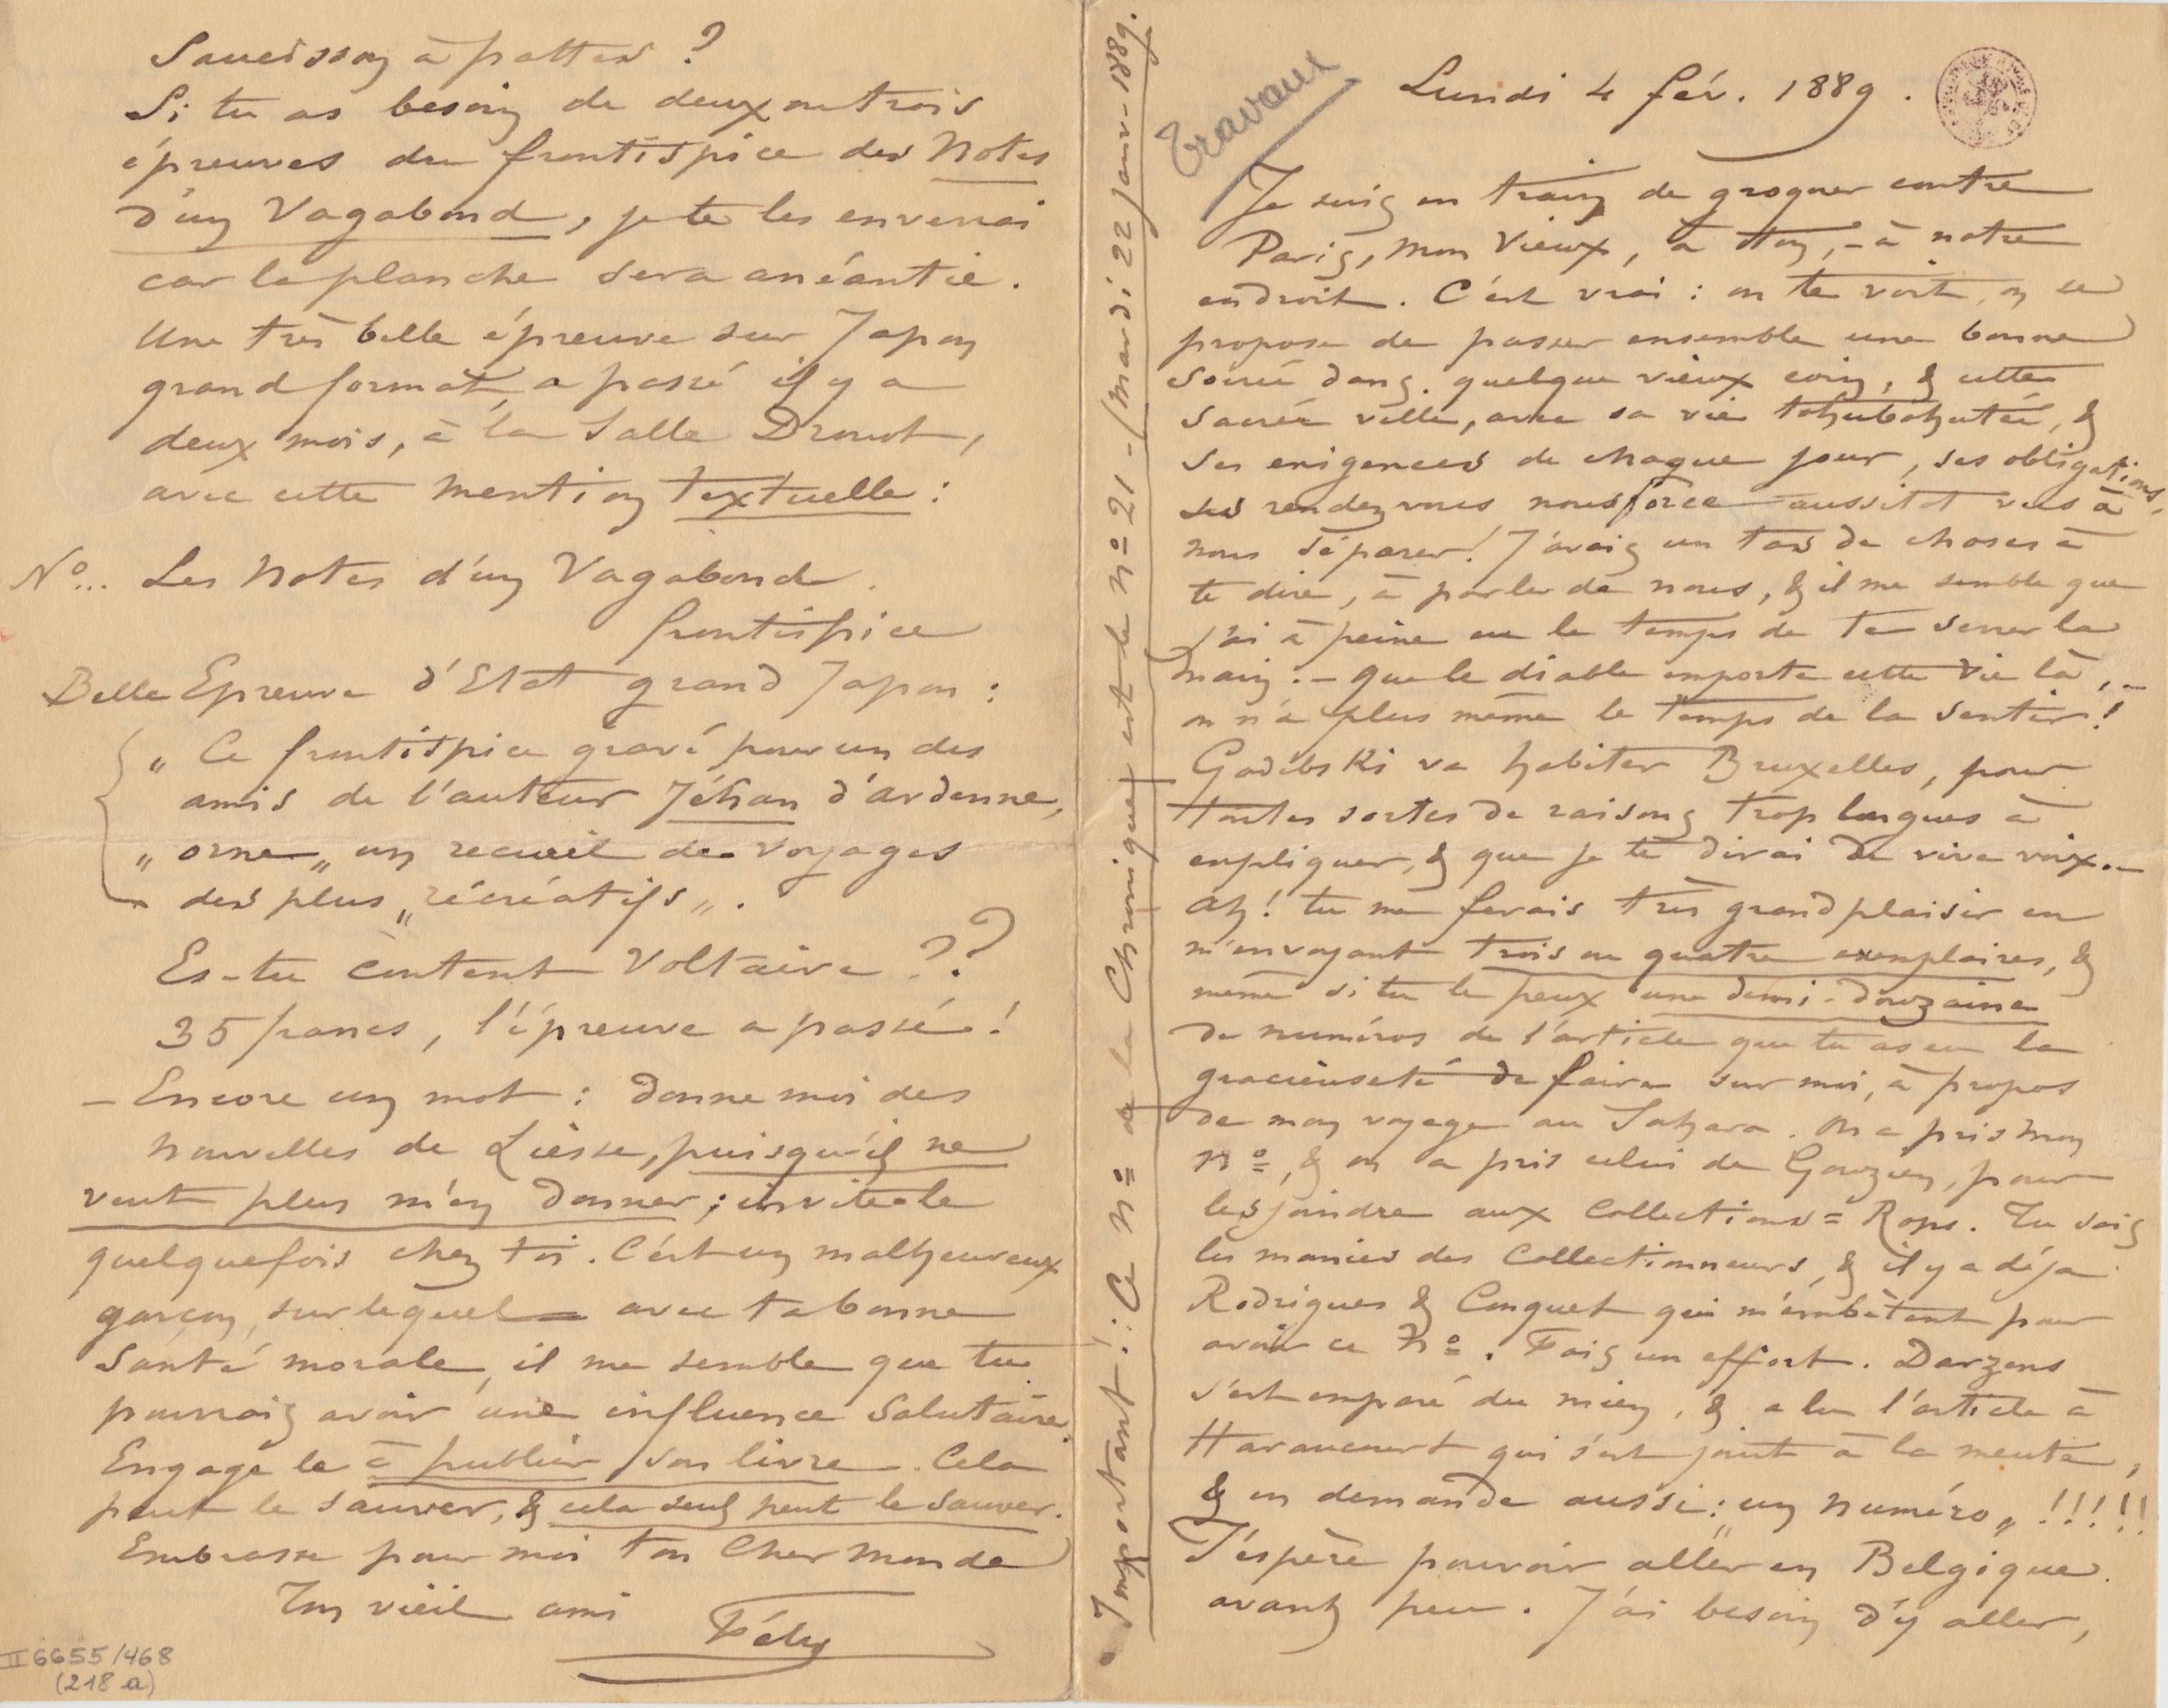 Travaux
Lundi 4 fév. 1889.
Je suis en train de grogner contre
Paris, mon Vieux, à ton, – à notre
endroit. C'est vrai : on te voit, on se
propose de passer ensemble une bonne
soirée dans quelque vieux coin, & cette
sacrée ville, avec sa vie tohubohutée, &
ses exigences de chaque jour, ses obligations,
ses rendez vous nous force aussitot vus à
nous séparer! J'avais un tas de choses à
te dire, à parler de nous, & il me semble que
j'ai à peine eu le temps de te serrer la
main. – Que le diable emporte cette vie là, –
on n'a plus même le temps de la sentir!
Godebski va habiter Bruxelles, pour
toutes sortes de raisons trop longues à
expliquer, & que je te dirai de vive voix. –
Ah! tu me ferais très grand plaisir en
m'envoyant trois ou quatre exemplaires, &
même si tu le peux une demi-douzaine
de numéros de l'article que tu as eu la
gracieuseté de faire sur moi, à propos
de mon voyage au Sahara. On a pris mon
Nº, & on a pris celui de Gouzien, pour
les joindre aux Collections = Rops. Tu sais
les manies des Collectionneurs, & il y a déja
Rodrigues & Conquet qui m'embêtent pour
avoir ce Nº. Fais un effort. Darzens
s'est emparé du mien, & a lu l'article à
Haraucourt qui s'est joint à la meute,
& en demande aussi : „un numéro„ !!!!!
J'éspère pouvoir aller en Belgique
avant peu. J'ai besoin d'y aller,
Important! : Ce Nº de la Chronique est le nº 21 – (mardi 22 janv – 1889.
Saucisson à pattes ?
Si tu as besoin de deux ou trois
épreuves du frontispice des Notes
d'un Vagabond, je te les enverrai
car la planche sera anéantie.
Une très belle épreuve sur Japon
grand format, a passé il y a
deux mois, à la Salle Drouot,
avec cette mention textuelle :
Nº... Les Notes d'un Vagabond.
frontispice
Belle Epreuve d'Etat grand Japon :
„ Ce frontispice gravé pour un des
amis de l'auteur Jéhan d'Ardenne,
„ orne „ un recueil de voyages
des plus „ récréatifs „.
Es-tu content Voltaire ??
35 francs, l'épreuve a passé!
– Encore un mot : Donne moi des
nouvelles de Liesse, puisqu'il ne
veut plus m'en donner ; invite-le
quelquefois chez toi. C'est un malheureux
garçon, sur lequel avec ta bonne
santé morale, il me semble que tu
pourrais avoir une influence salutaire.
Engage le à publier son livre. Cela
peut le sauver, & cela seul peut le sauver.
Embrasse pour moi ton Cher monde
Ton vieil ami
Fély
II 6655/468
(218 a)